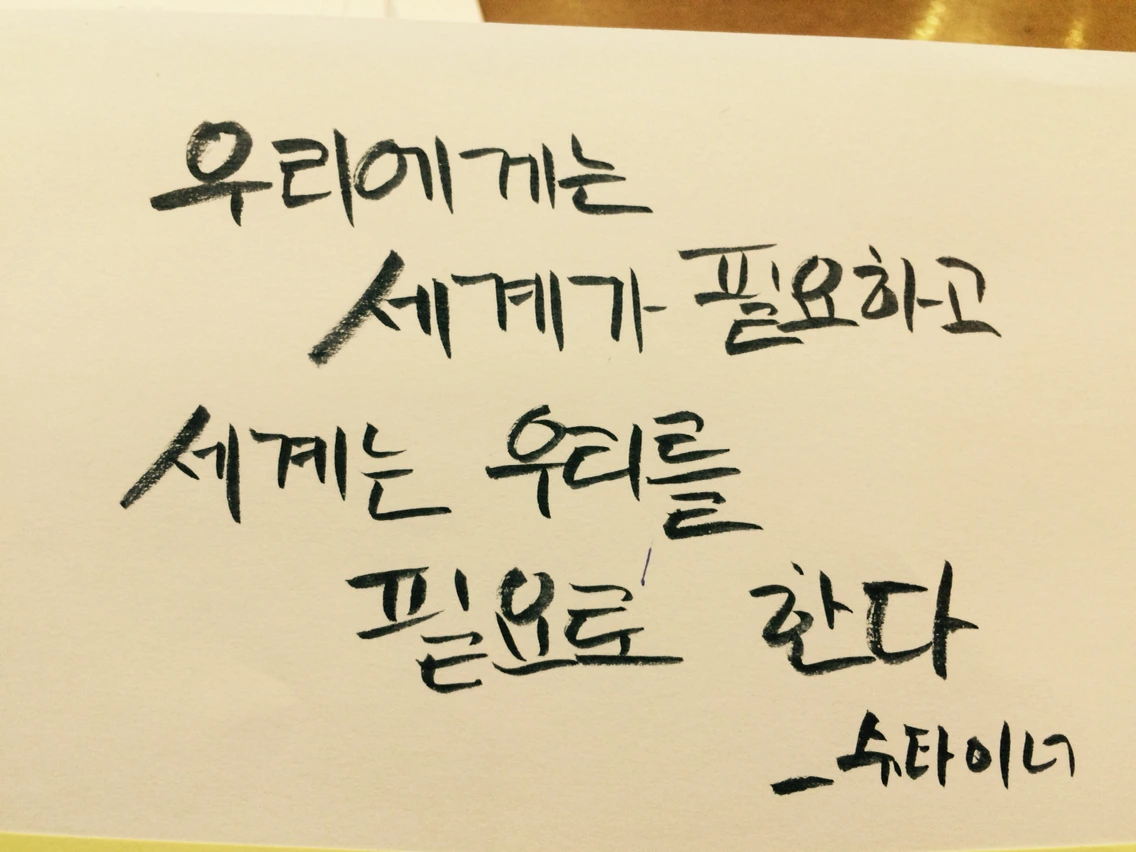 우리에게는
세계가 필요하고
세계는 우리를
필요로 한다
_슈타이너